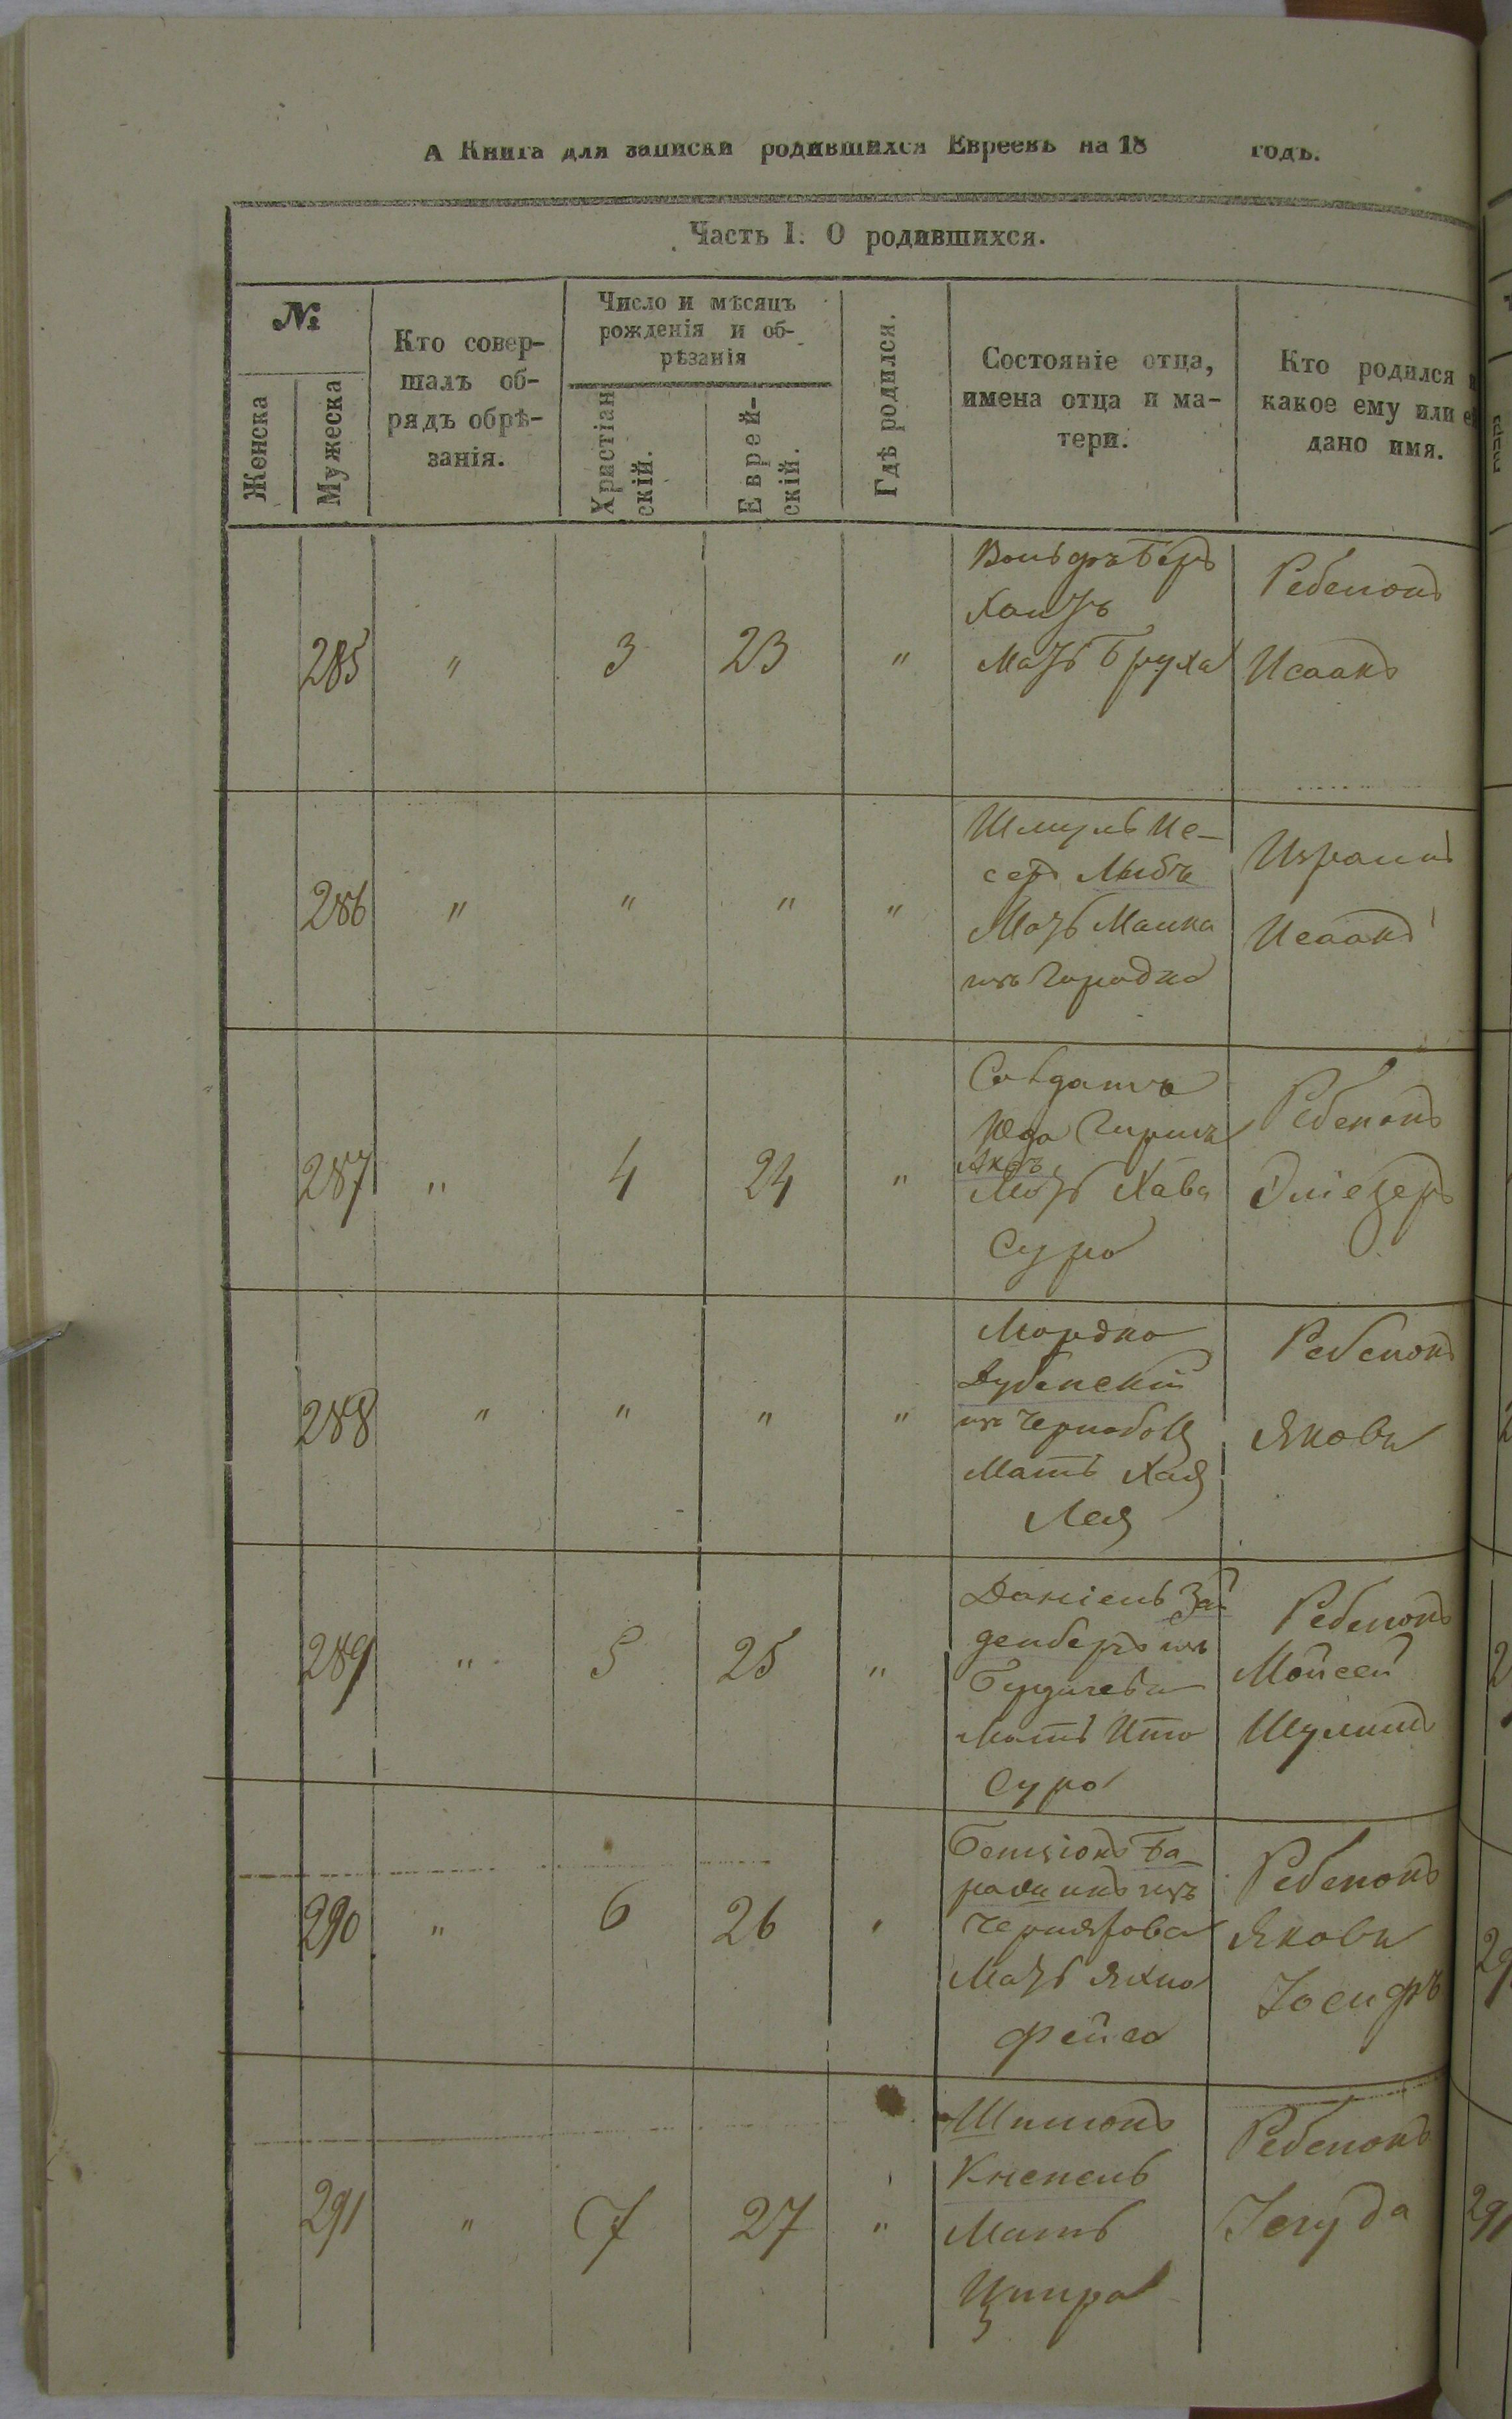 А Книга для записки родившихся Евреевъ на 18 годъ.
Часть I. О родившихся.
№
Женска
Мужеска
Кто совер-
шалъ об-
рядъ обрѣ-
занія.
Число и мѣсяцъ
рожденія и об-
рѣзанія
Христіан
скій.
Еврей-
скій.
Гдѣ родился.
Состояніе отца,
имена отца и ма-
тери.
Кто родился и
какое ему или ей
дано имя.
285 " 3 23 "
Вольфъ Беръ
Мать Бруха
Ребенокъ
Исаакъ
286 " " " "
Шмуль Ие-
серъ
Мать Малка
изъ Городка
Израиль
Исаакъ
287 " 4 24 "
Солдатъ
Юда Гиршъ
Мать Хава
Сура
Ребенокъ
Эліезеръ
288 " " " "
Мордко
Дубенскій
изъ Чернобыля
Мать Хая
Лея
Ребенокъ
Яковъ
289 " 5 25 "
Даніель Зай
денберъ изъ
Бердичева
Мать Ита
Сура
Ребенокъ
Мойсей
Шулимъ
290 " 6 26 "
Бенціонъ Ба-
изъ
Черняхова
Мать Яхна
Фейга
Ребенокъ
Яковъ
Іосифъ
291 " 7 27 "
Шимонъ
Кнепель
Мать
Ципра
Ребенокъ
Іегуда